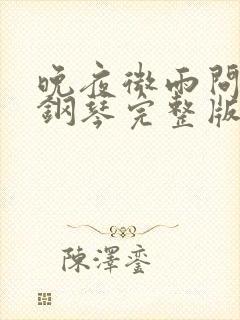 晚夜微雨問
鋼琴完整版
陳澤鑾